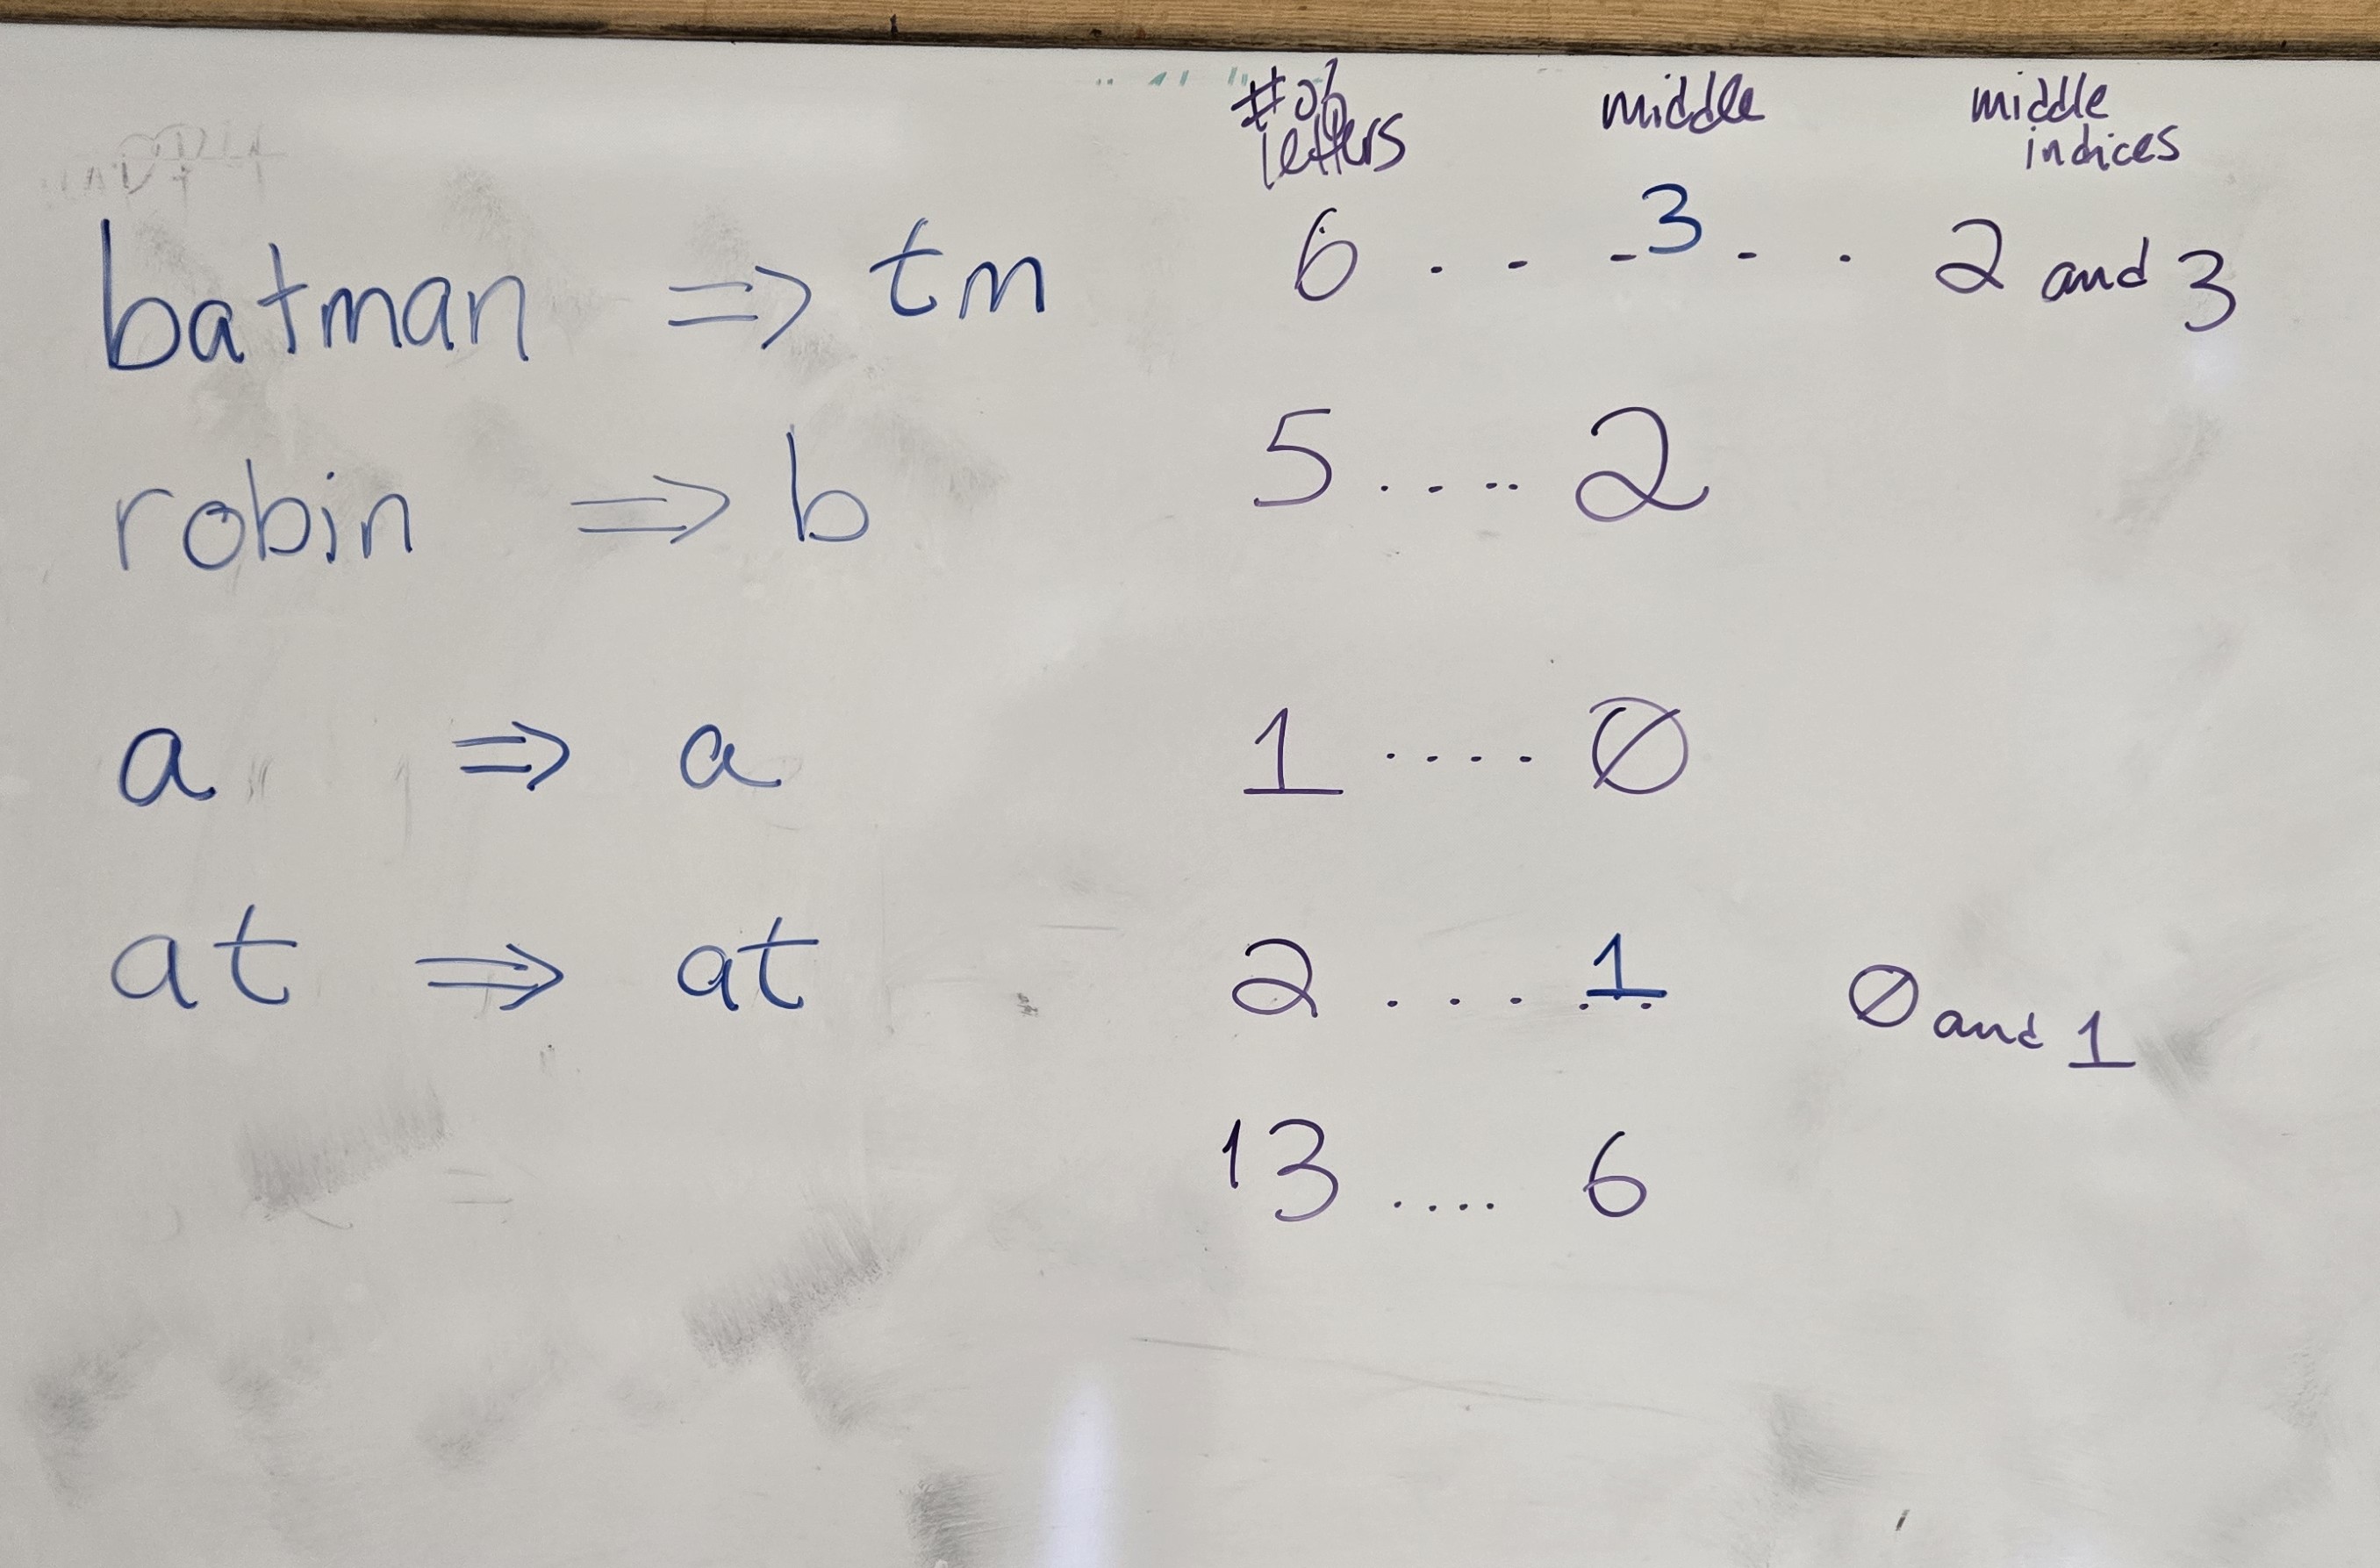 #of middle middle
letters indices
batman => tm 6 . . . 3 . . 2 and 3
robin => b 5 . . . . 2
a => a 1 . . . . Ø
at => at 2 . . . . . 1 Ø and 1
13 . . . . 6